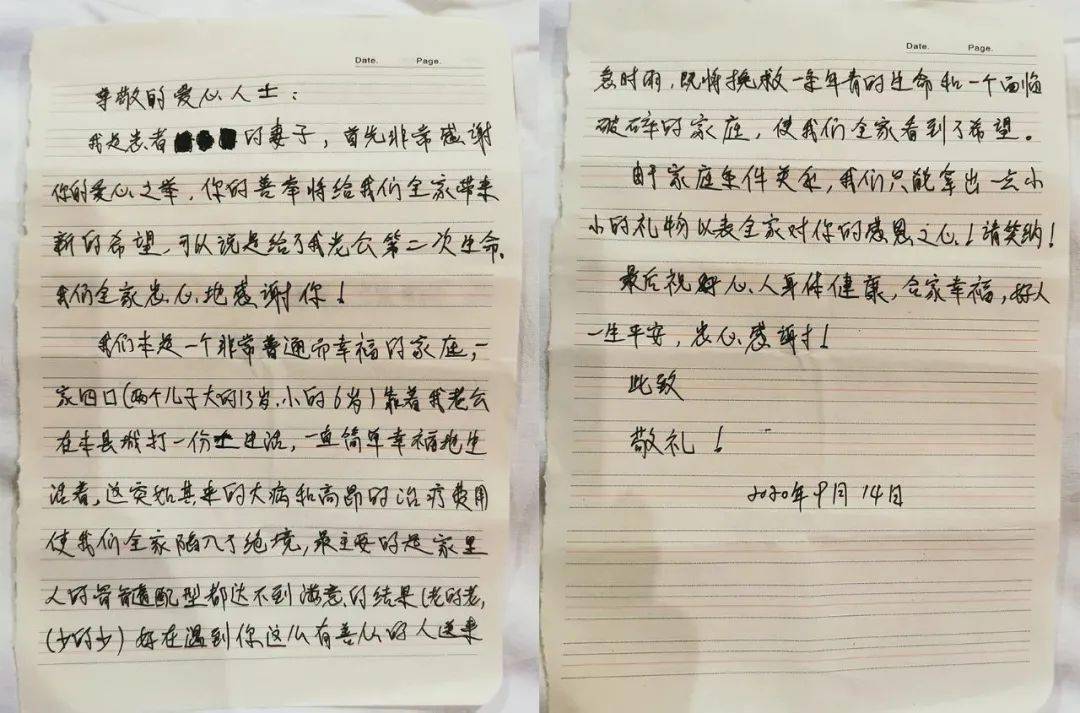 Date. Page.
尊敬的爱心人士：
我是患者的妻子，首先非常感谢
你的爱心之举，你的善举将给我们全家带来
新的希望，可以说是给了我老公第二次生命。
我们全家衷心地感谢你！
我们本是一个非常普通而幸福的家庭，一
家四口（两个儿子大的13岁，小的6岁）靠着我老公
在本县城打一份工生活，一直简单幸福地生
活着，这突如其来的大病和高昂的治疗费用
使我们全家陷入了绝境，最主要的是家里
人的骨髓配型都达不到满意的结果（老的老，
（少的少）好在遇到你这么有善心的人送来
Date. Page.
急时雨，既将挽救一条年青的生命和一个面临
破碎的家庭，使我们全家看到了希望。
由于家庭条件关系，我们只能拿出一点小
小的礼物以表全家对你的感恩之心！请笑纳！
最后祝好心人身体健康，合家幸福，好人
一生平安，衷心感谢！
此致
敬礼！
2020年9月14日